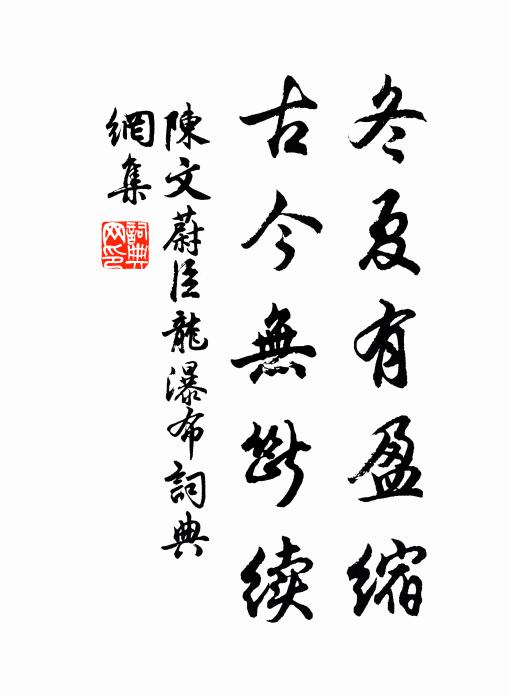 冬夏有盈縮
古今無斷续
陳文蔚臣龍瀑布詞典
網集
詞典網印